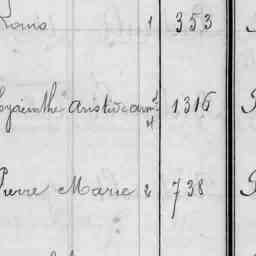 Louis 1 353
Hyacinthe Aristide 1316
Pierre Marie 2 738